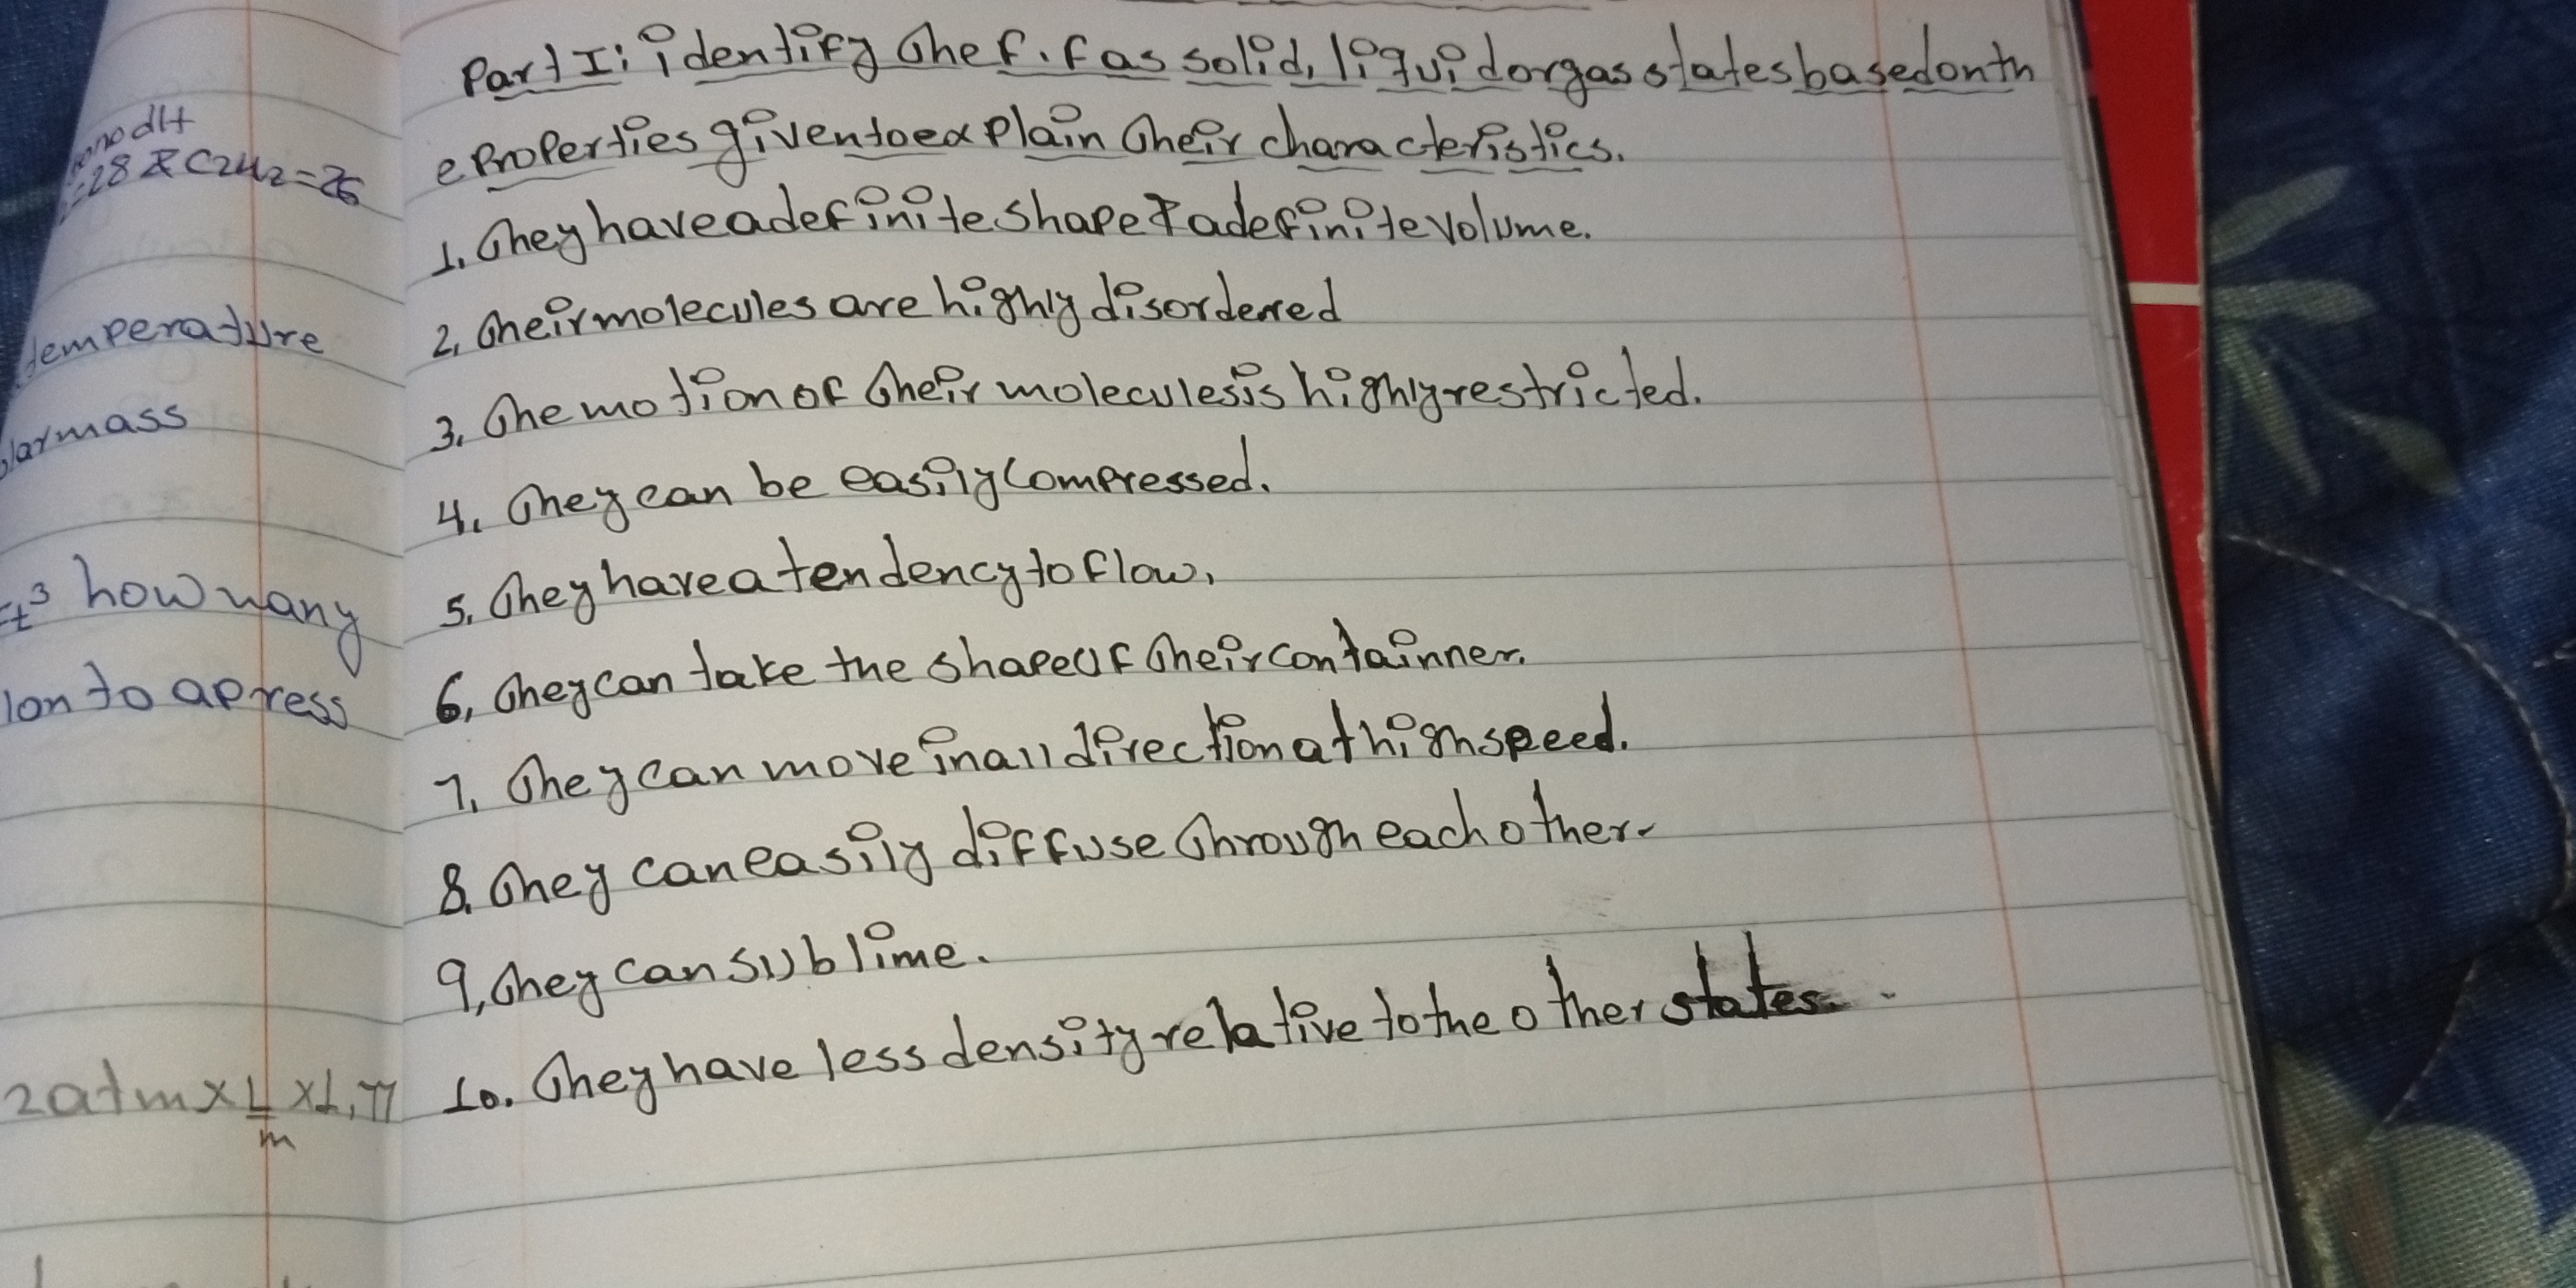 Part I: identify the f.f as solid, liquid or gas states based on th
e properties given to explain their characteristics.
1. They have a definite shape & a definite volume.
2, their molecules are highly disordered
3, The motion of their molecules is highly restricted.
4, They can be easily compressed.
5, They have a tendency to flow,
6, They can take the shape of their containner.
7, They can move in all direction at high speed.
8. They can easily diffuse through each other.
9, they can sublime.
10. They have less density relative to the other states.
28 & C2H2=26
temperature
mass
how many
to a press
2atm x L/m x